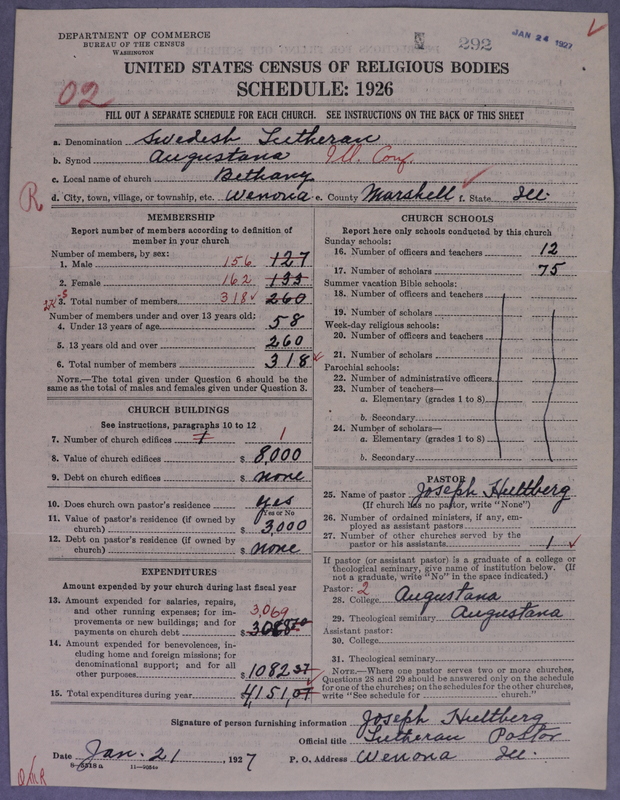 DEPARTMENT OF COMMERCE
BUREAU OF THE CENSUS
WASHINGTON
292
JAN 24 1927
UNITED STATES CENSUS OF RELIGIOUS BODIES
SCHEDULE: 1926
02
FILL OUT A SEPARATE SCHEDULE FOR EACH CHURCH. SEE INSTRUCTIONS ON THE BACK OF THIS SHEET
a. Denomination Swedish Lutheran
b. Synod Augustana Ill. Conf.
c. Local name of church Bethany
R
d. City, town, village, or township, etc. Wenona e. County Marshell f. State Ill.
MEMBERSHIP
Report number of members according to definition of
member in your church
Number of members, by sex:
1. Male 156 127
2. Female 162 133
3. Total number of members 318 260
Number of members under and over 13 years old:
4. Under 13 years of age 58
5. 13 years old and over 260
6. Total number of members 318
NOTE.—The total given under Question 6 should be the
same as the total of males and females given under Question 3.
CHURCH BUILDINGS
See instructions, paragraphs 10 to 12
7. Number of church edifices 1 1
8. Value of church edifices $ 8,000
9. Debt on church edifices $ none
10. Does church own pastor's residence yes
Yes or No
11. Value of pastor's residence (if owned by
church) $ 3,000
12. Debt on pastor's residence (if owned by
church) $ none
EXPENDITURES
Amount expended by your church during last fiscal year
13. Amount expended for salaries, repairs,
and other running expenses; for im-
provements or new buildings; and for
payments on church debt $ 3,069
14. Amount expended for benevolences, in-
cluding home and foreign missions; for
denominational support; and for all
other purposes $ 1082.37
15. Total expenditures during year $ 4,151,07
CHURCH SCHOOLS
Report here only schools conducted by this church
Sunday schools:
16. Number of officers and teachers 12
17. Number of scholars 75
Summer vacation Bible schools:
18. Number of officers and teachers
19. Number of scholars
Week-day religious schools:
20. Number of officers and teachers
21. Number of scholars
Parochial schools:
22. Number of administrative officers
23. Number of teachers—
a. Elementary (grades 1 to 8)
b. Secondary
24. Number of scholars—
a. Elementary (grades 1 to 8)
b. Secondary
PASTOR
25. Name of pastor Joseph Hultberg
(If church has no pastor, write "None")
26. Number of ordained ministers, if any, em-
ployed as assistant pastors
27. Number of other churches served by the
pastor or his assistants 1
If pastor (or assistant pastor) is a graduate of a college or
theological seminary, give name of institution below. (If
not a graduate, write "No" in the space indicated.)
Pastor: 2
28. College Augustana
29. Theological seminary Augustana
Assistant pastor:
30. College
31. Theological seminary
NOTE.—Where one pastor serves two or more churches,
Questions 28 and 29 should be answered only on the schedule
for one of the churches; on the schedules for the other churches,
write "See schedule for church."
Signature of person furnishing information Joseph Hultberg
Official title Lutheran Pastor
Date Jan. 21, 1927 P. O. Address Wenona Ill.
8-5518a 11-9054a